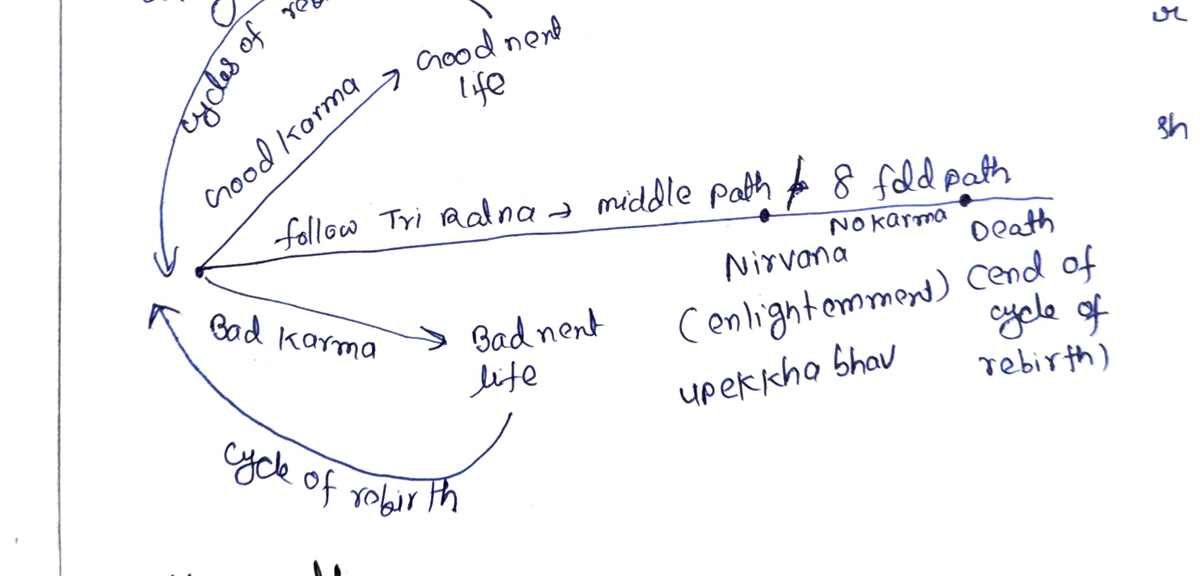 cycles of
Good nent
life
Good Karma
follow Tri Ratna → middle path / 8 fold path
No karma
Death
Nirvana
(enlightemment)
(end of
cycle of
rebirth)
upekkha bhav
Bad Karma
Bad nent
life
Cycle of rebirth
sh